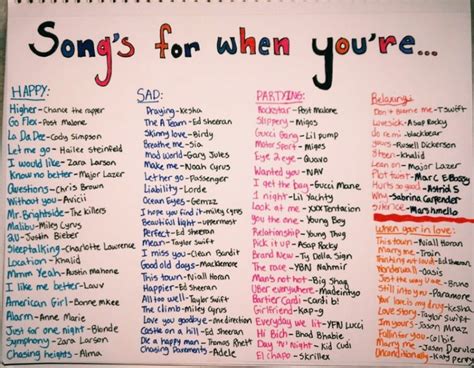 Song's for when you're...
HAPPY:
Higher - Chance the rapper
Go Flex - Post Malone
La Da Dee - Cody Simpson
Let me go - Hailee Steinfeld
I would like - Zara Larson
Know no better - Major Lazer
Questions - Chris Brown
Without you - Avicii
Mr. Brightside - The killers
Malibu - Miley Cyrus
2U - Justin Bieber
Sleeptalking - Charlotte Lawrence
Location - Khalid
Mmm Yeah - Austin Mahone
I like me better - Lauv
American Girl - Bonnie Mkee
Alarm - Anne Marie
Just for one night - Blonde
Symphony - Zara Larson
Chasing heights - Alma
SAD:
Praying - Kesha
The A Team - Ed Sheeran
Skinny love - Birdy
Breathe me - Sia
Mad World - Gary Jules
Make me - Noah Cyrus
Let her go - Passenger
Liability - Lorde
Ocean Eyes - Gemzz
I hope you find it - Miley Cyrus
Beautiful light - Uppermost
Perfect - Ed Sheeran
Mean - Taylor Swift
I miss you - Clean Bandit
Good old days - Macklemore
This town - Niall Horan
Happier - Ed Sheeran
All too well - Taylor Swift
The climb - Miley Cyrus
Love you goodbye - One direction
Castle on a hill - Ed Sheeran
Die a happy man - Thomas Rhett
Chasing Pavements - Adele
PARTYING:
Rockstar - Post Malone
Slippery - Migos
Gucci Gang - Lil pump
Motor Sport - Migos
Eye 2 eye - Quavo
Wanted you - NAV
I get the bag - Gucci Mane
I want you - Sabrina Carpenter
Look at me - XXXTentacion
you the one - Young Boy
Relationship - Young Thug
Pick it up - Asap Rocky
Brand New - Ty Dolla Sign
The race - YBN Nahmir
Man's not hot - Big Shaq
Uber everywhere - Madeintyo
Bartier Cardi - Cardi b!
Girlfriend - Kap-g
Everyday we lit - YFN Lucci
Day 'N' Night - Kid Cudi
El chapo - Skrillex
Relaxing:
Don't blame me - T Swift
Lovesick - Asap Rocky
do re mi - blackbear
yours - Russell Dickerson
8teen - Khalid
Lean on - Major Lazer
Plot twist - Marc E Bassy
Hurts so good - Astrid S
Why - Sabrina Carpenter
Silence - Marshmello
When your in love:
This town - Niall Horan
Marry me - Train
Thinking out loud - Ed Sheeran
Wonderwall - Oasis
Just the way you are - Bruno
Still into you - Paramore
Your love is my drug - Kesha
Love story - Taylor Swift
I'm yours - Jason Mraz
Fallin for you - Colbie
Marry me - Jason Derulo
Unconditionally - Katy perry